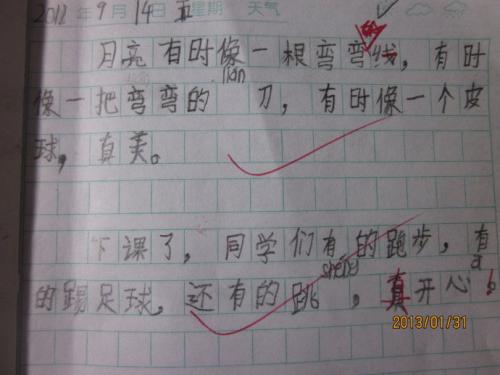 2012年9月14日五星期 天气
月亮有时像一根弯弯线，有时
lian
像一把弯弯的 刀，有时像一个皮
球，真美。
下课了，同学们有的跑步，有
sheng a
的踢足球，还有的跳 ，真开心
2013/01/31